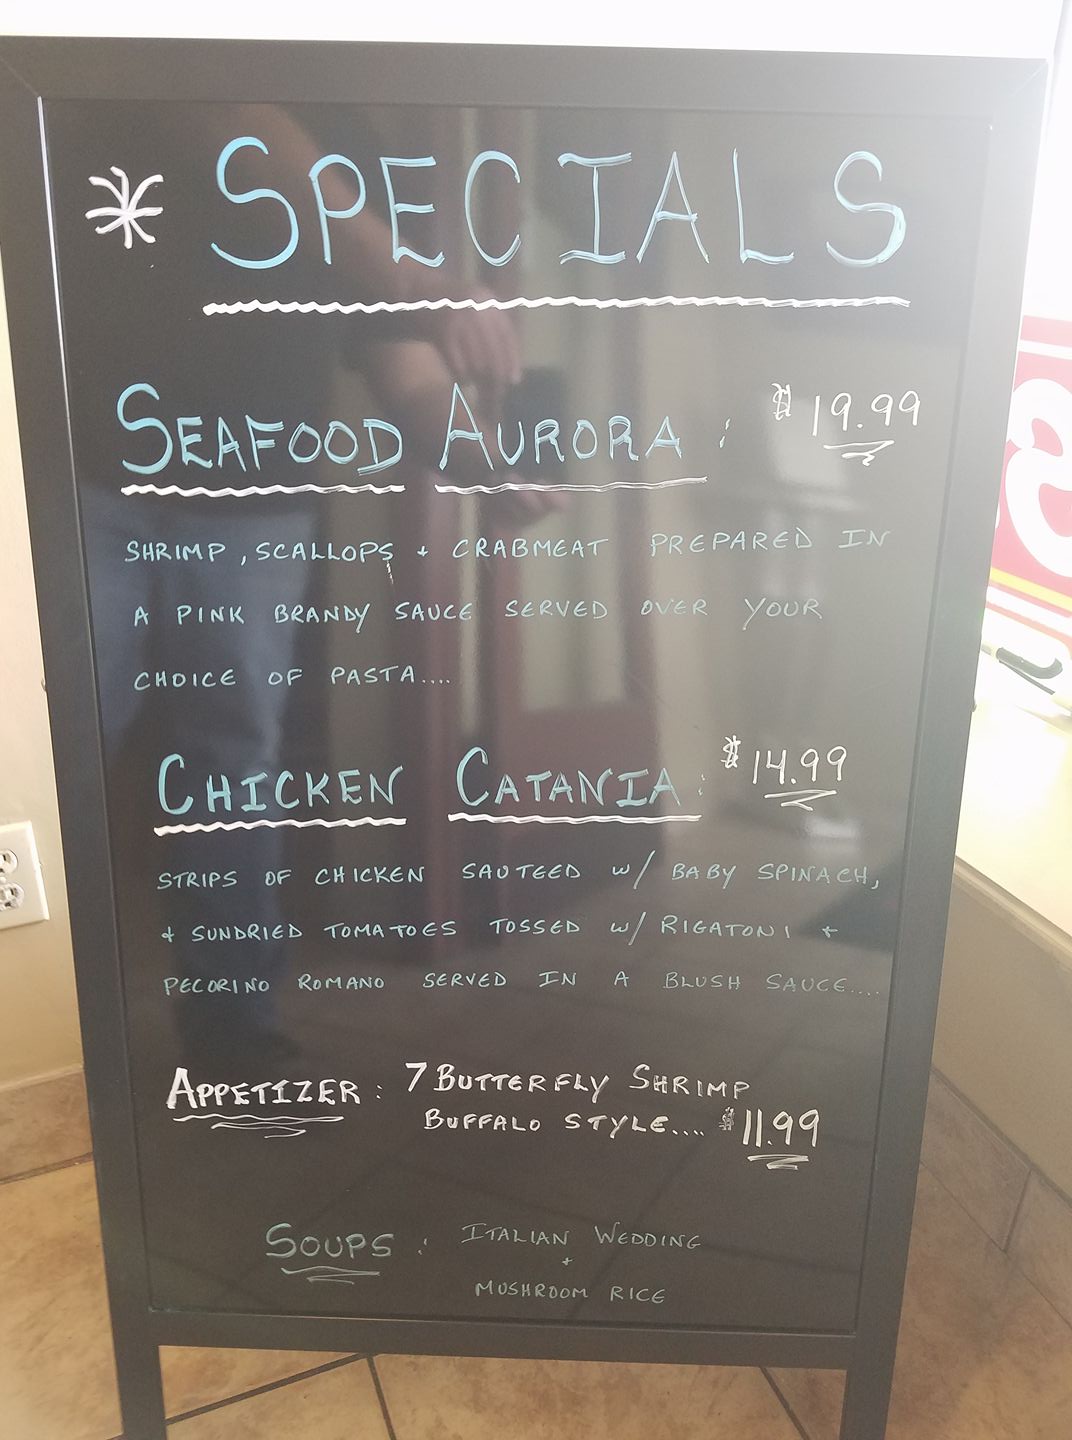 * SPECIALS
SEAFOOD AURORA: $19.99
SHRIMP, SCALLOPS + CRABMEAT PREPARED IN
A PINK BRANDY SAUCE SERVED OVER YOUR
CHOICE OF PASTA....
CHICKEN CATANIA: $14.99
STRIPS OF CHICKEN SAUTEED w/ BABY SPINACH,
+ SUNDRIED TOMATOES TOSSED w/ RIGATONI +
PECORINO ROMANO SERVED IN A BLUSH SAUCE....
APPETIZER: 7 BUTTERFLY SHRIMP
BUFFALO STYLE.... $11.99
SOUPS: ITALIAN WEDDING
+
MUSHROOM RICE